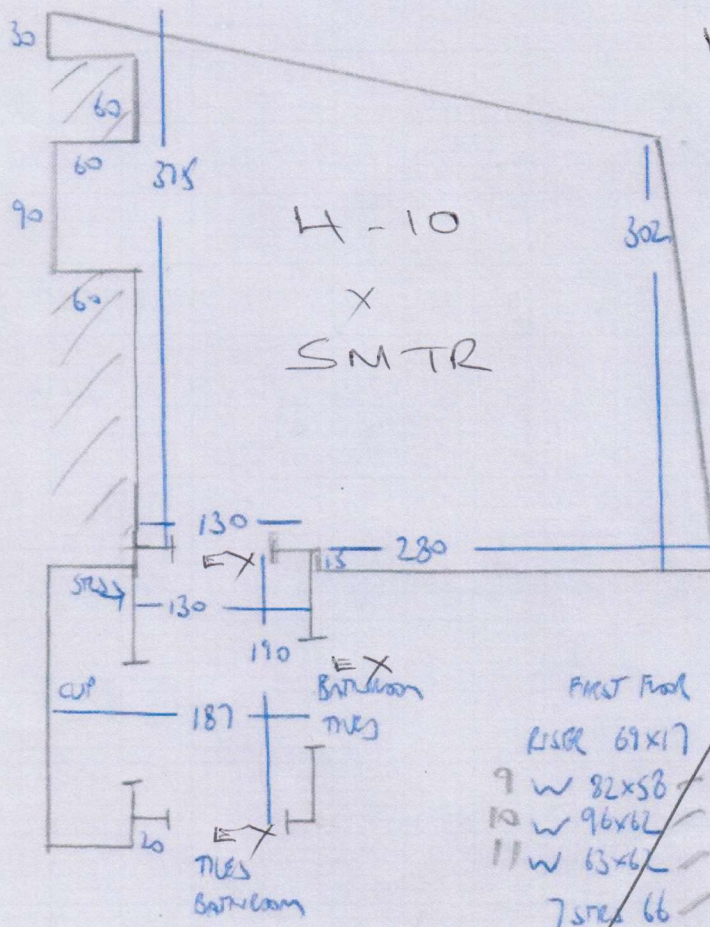 30
60
60
375
90
60
302
4-10
x
SMTR
130
EX
15
280
STRS
130
190
EX
BATHROOM
TILES
CUP
187
20
EX
TILES
BATHROOM
FIRST FLOOR
RISER 69x17
9 W 82x58
10 W 96x62
11 W 63x62
7 STRS 66